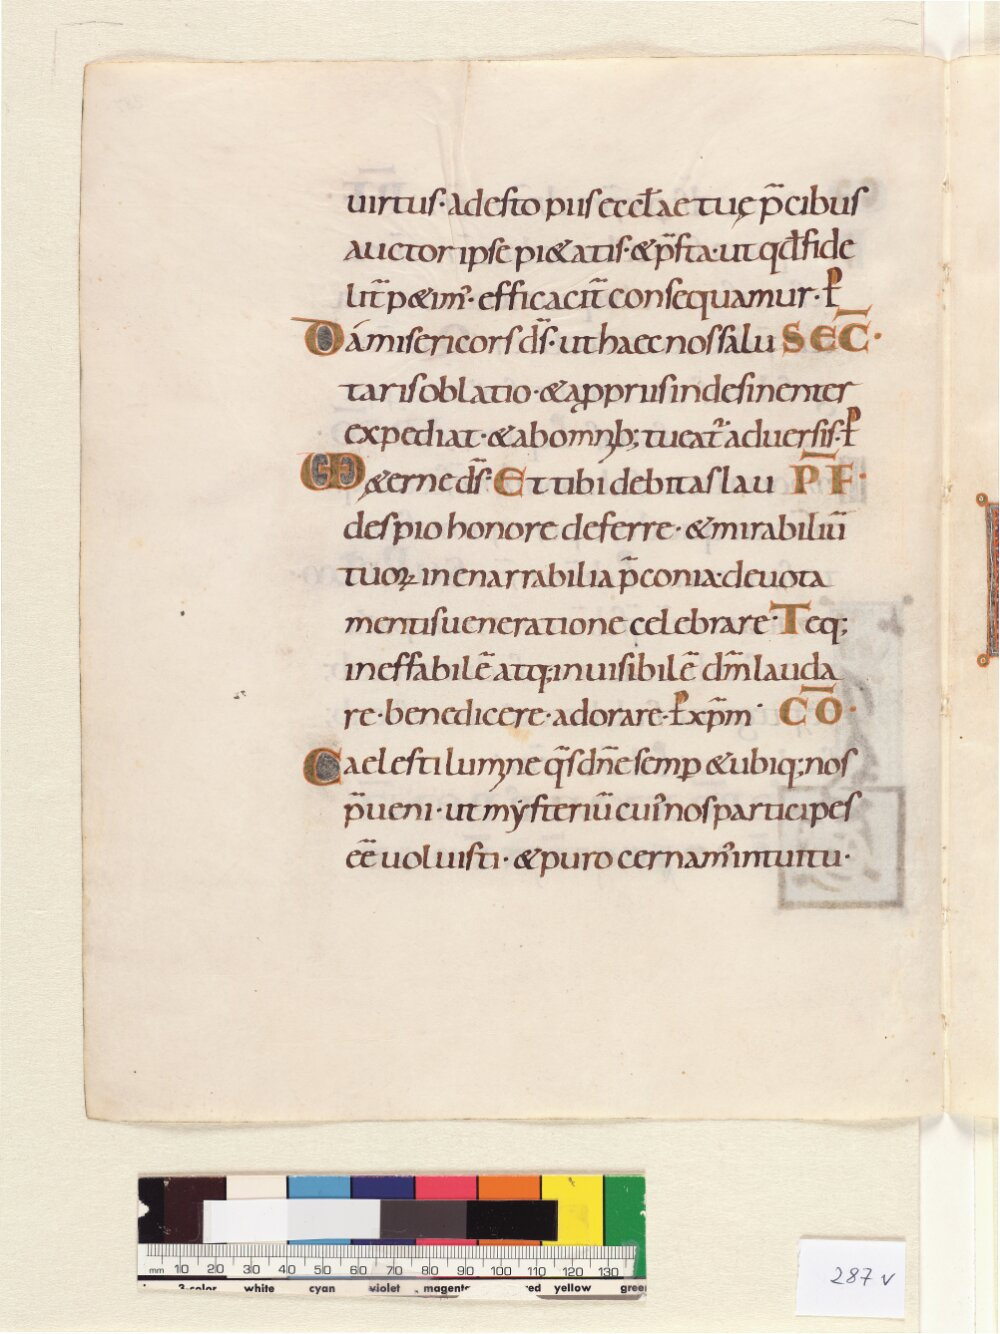 uirtus· adesto piis eccl̄ae tuę p̄cibus
auctor ipse pi&atis· &p̄sta· ut qd̄ fide
lit̄ p&im᷒· efficacit̄ consequamur· P̄
Dá misericors d̄s· ut haec nos salu SEC̄·
taris oblatio· & a ꝓpriis indesinenter
expediat· & ab omnib; tueat᷒ aduersis· P̄
Vǣ&erne d̄s· Et tibi debitas lau P̄F·
des pio honore deferre· & mirabiliū
tuoꝝ inenarrabilia p̄conia· deuota
mentis ueneratione celebrare· Teq;
ineffabilē atq; inuisibilē dn̄m lauda
re· benedicere· adorare· P̄ xp̄m· C̄O·
Caelesti lumine q̄s dn̄e semp̱ & ubiq; nos
p̄ueni· ut mẏsteriū cui᷒ nos participes
eē̄ uoluisti· & puro cernam᷒ intuitu·
mm 10 20 30 40 50 60 70 80 90 100 110 120 130
3-color white cyan violet magenta red yellow green
287 v